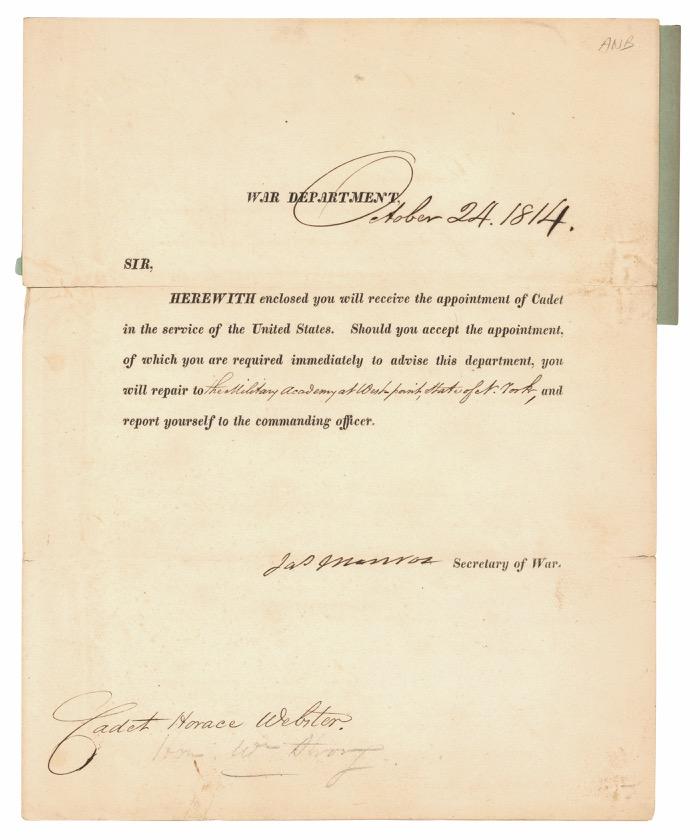 ANB
WAR DEPARTMENT,
October 24. 1814.
SIR,
HEREWITH enclosed you will receive the appointment of Cadet
in the service of the United States. Should you accept the appointment,
of which you are required immediately to advise this department, you
will repair to the Military Academy at West-point, State of N. York, and
report yourself to the commanding officer.
Jas Monroe Secretary of War.
Cadet Horace Webster.
Wm